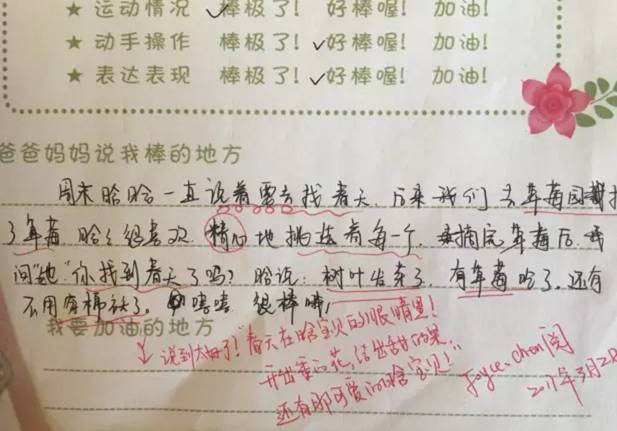 ★ 运动情况 ✓棒极了! 好棒喔! 加油!
★ 动手操作 棒极了! ✓好棒喔! 加油!
★ 表达表现 棒极了! ✓好棒喔! 加油!
爸爸妈妈说我棒的地方
周末晗晗一直说着要去找春天,后来我们去草莓园摘
了草莓,晗晗很喜欢,精心地挑选着每一个,摘完草莓后,我
问她“你找到春天了吗?晗说:树叶发芽了,有草莓吃了,还有
不用穿棉袄了。嘻嘻 很棒哦!
我要加油的地方
说到太好了!春天在晗宝贝的眼睛里!
开出朵朵花,结出甜的果
还有那可爱的晗宝贝!
Joyce. Chen 阅
2017年3月2